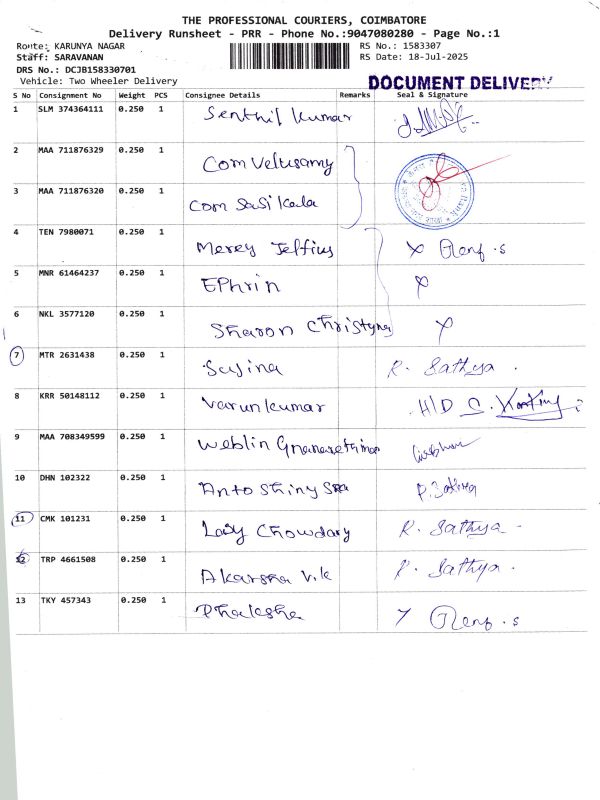 THE PROFESSIONAL COURIERS, COIMBATORE
Delivery Runsheet - PRR - Phone No.:9047080280 - Page No.:1
Route: KARUNYA NAGAR RS No.: 1583307
Staff: SARAVANAN RS Date: 18-Jul-2025
DRS No.: DCJB158330701
Vehicle: Two Wheeler Delivery DOCUMENT DELIVERY
S No Consignment No Weight PCS Consignee Details Remarks Seal & Signature
1 SLM 374364111 0.250 1 Senthil Kumar
2 MAA 711876329 0.250 1 Com Velusamy
3 MAA 711876320 0.250 1 Com Sasikala
4 TEN 7980071 0.250 1 Mercy Jeffius
5 MNR 61464237 0.250 1 Ephrin
6 NKL 3577120 0.250 1 Sharon Christyna
7 MTR 2631438 0.250 1 Sajina R. Sathya
8 KRR 50148112 0.250 1 Varunkumar H/D
9 MAA 708349599 0.250 1 Weblin
10 DHN 102322 0.250 1 Anto Shiny
11 CMK 101231 0.250 1 Lady Chowdary R. Sathya
12 TRP 4661508 0.250 1 Akarsha V.K R. Sathya
13 TKY 457343 0.250 1